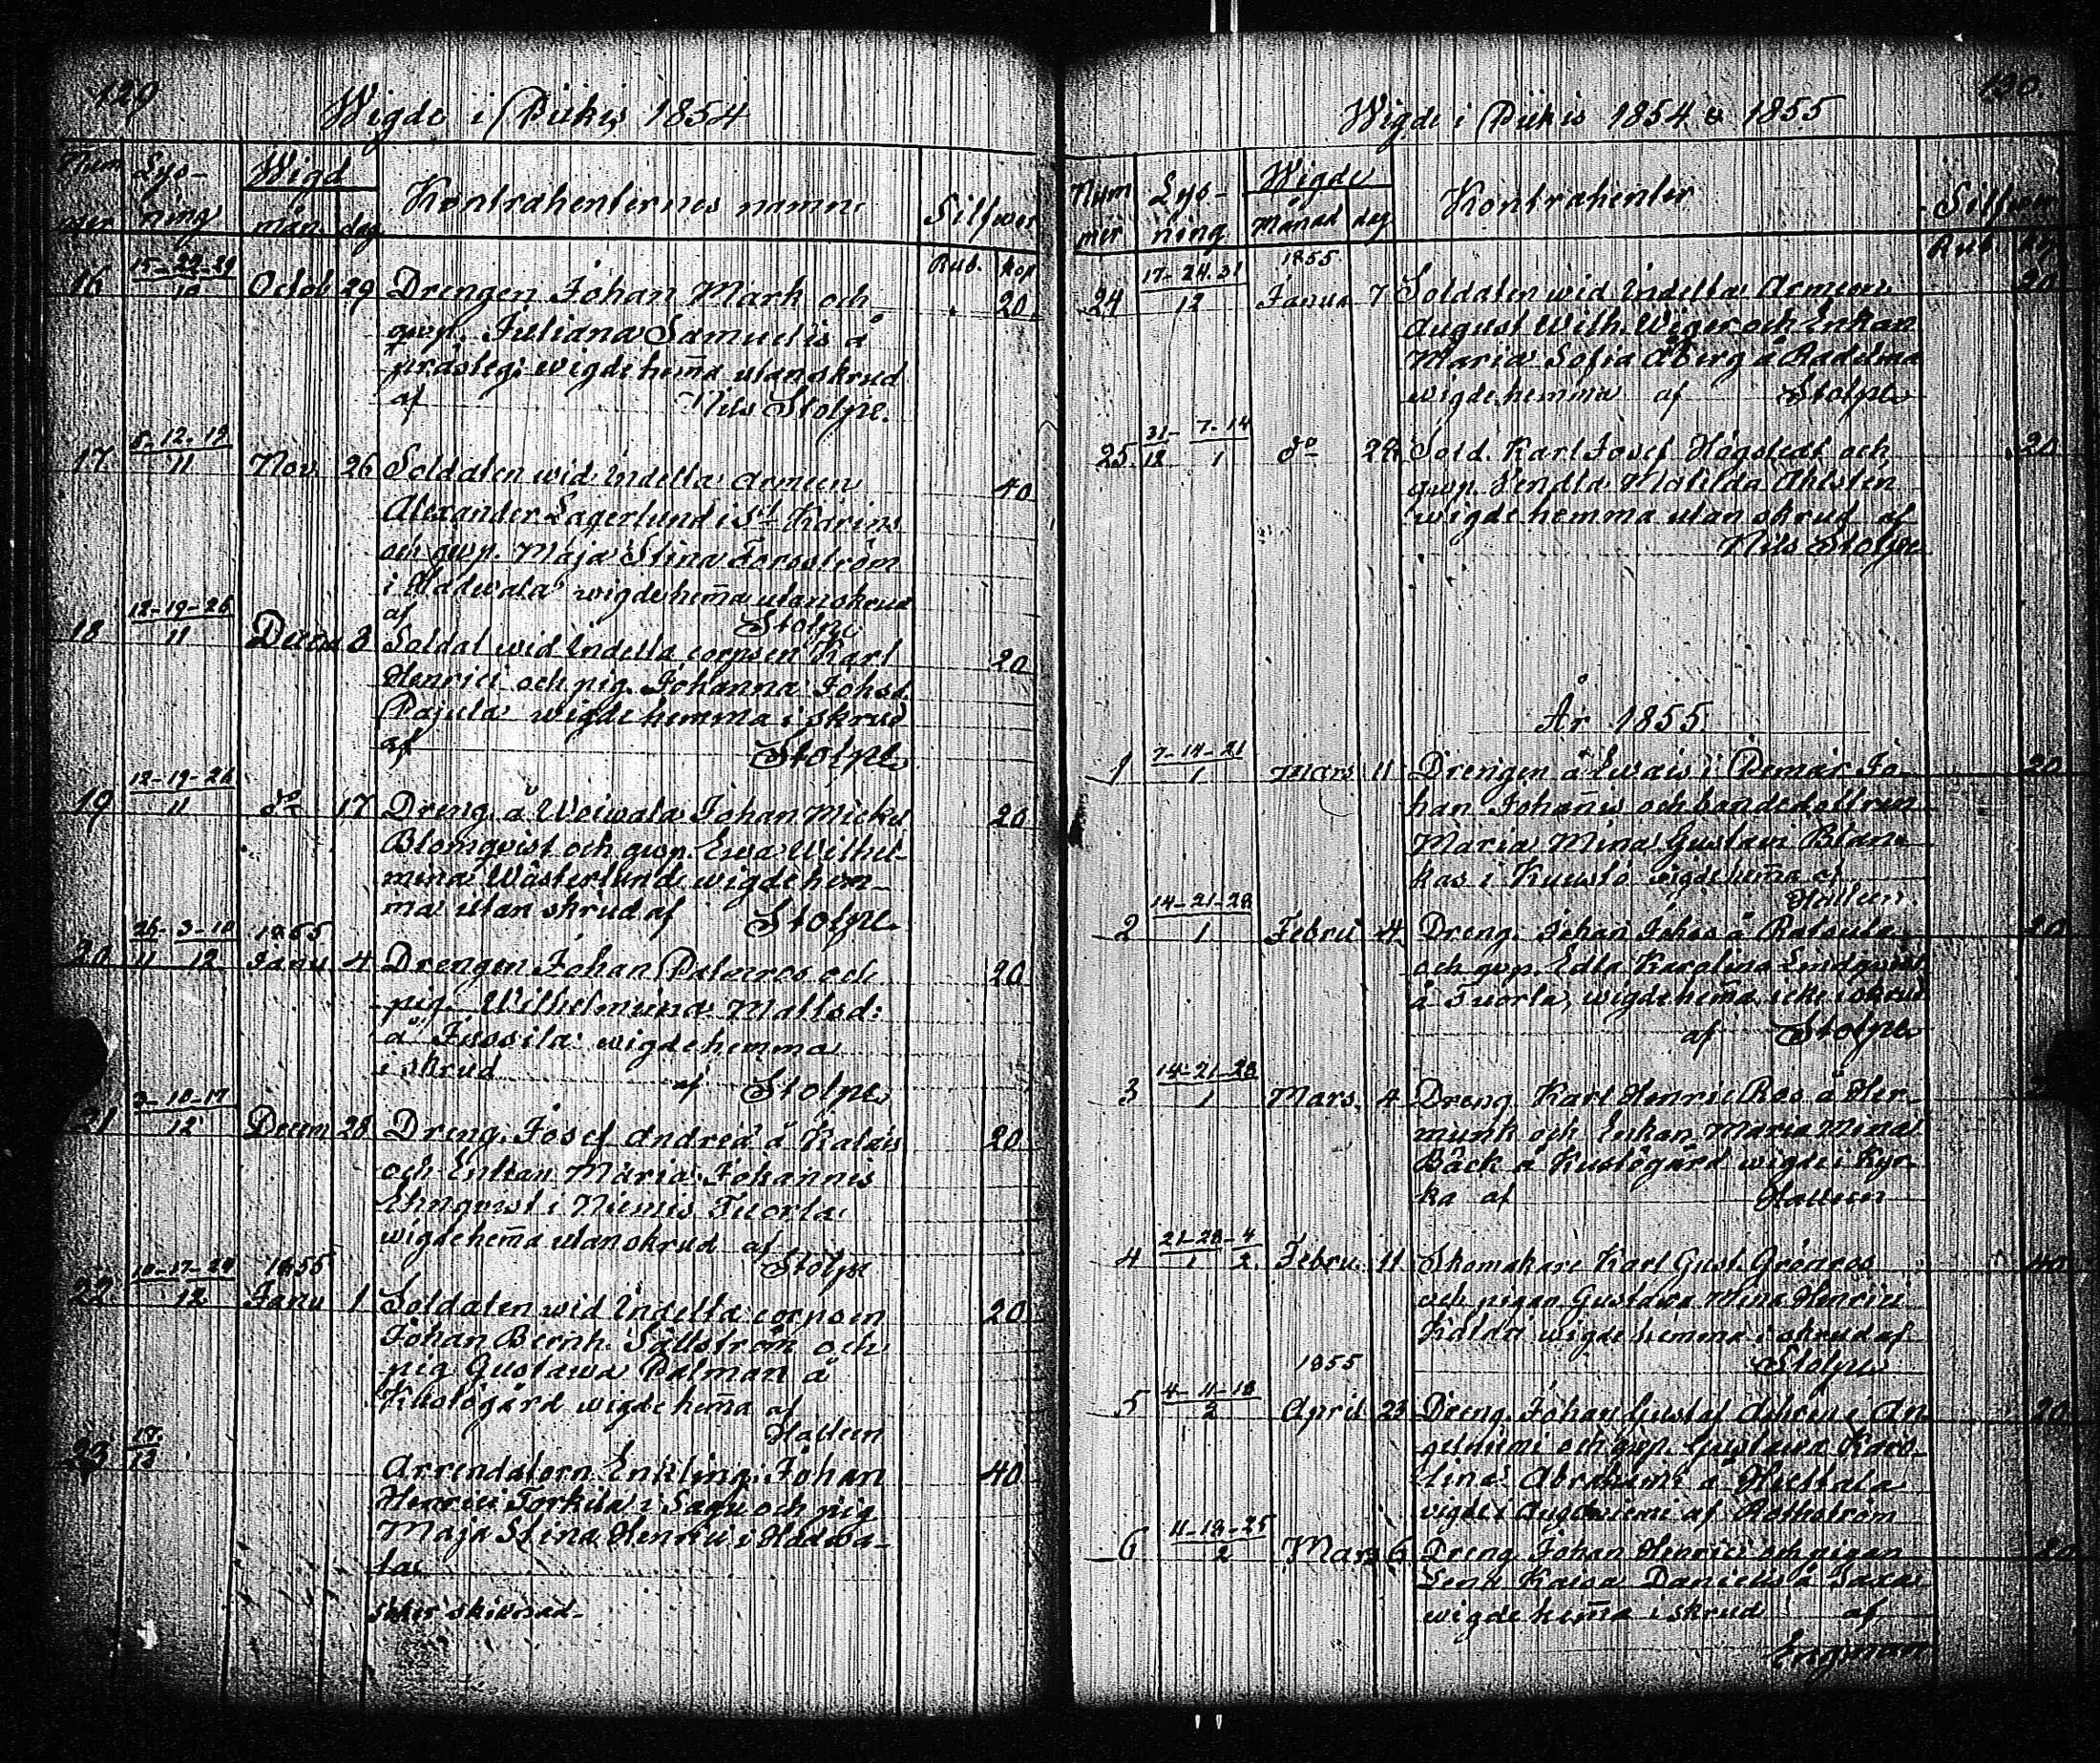 129
Wigde i Piikis 1854
Num Lys- Wigd
mer ning mån dag Kontrahenternes namn Silfwer
Rub. kop
16 15-22-29/10 Octob 29 Drengen Johan Mark och 20
qwp. Juliana Samuelis å
prästeg: wigde hem̄a utan skrud
af Nils Stolpe.
17 5-12-19/11 Nov. 26 Soldaten wid Indelta Armeen 40
Alexander Lagerlund i St Karins
och qwp. Maja Stina Forsström
i wigde hem̄a utan skrud
af Stolpe
18 12-19-26/11 Decem 3 Soldat wid Indelta corpsen Karl 20
Henrici och pig. Johanna Johsd.
Pajula wigde hemma i skrud
af Stolpe
19 12-19-26/11 do 17 Dreng. å Weiwala Johan Mickel 20
Blomqvist och qwp. Ewa Wilhel-
mina Wästerlund wigde hem-
ma utan skrud af Stolpe
20 26/11 3-10/12 1855 Janu 4 Drengen Johan och 20
pig. Wilhelmina Mattsd:
å Jussila wigde hemma
i skrud af Stolpe
21 3-10-17/12 Decem 28 Dreng. Josef Andreæ å 20
och Enkan Maria Johannis
Ehnqvist i Niemis Tuorla
wigde hem̄a utan skrud af
Stolpe
22 10-17-24/12 1855 Janu 1 Soldaten wid Indelta corpsen 20
Johan Bernh. Sällström och
pig Gustawa Palman å
Kustögård wigde hem̄a af
Halleen
23 17/12 Arrendatorn Enkling. Johan 40
Henrici Torkila i Sagu och pig
Maja Stina Henrici i Hadwa-
la

130.
Wigde i Piikis 1854 & 1855
Num Lys- Wigde
mer ning Månad dag Kontrahenter Silfwer
Rub kop
24 17-24-31/12 1855 Janua 7 Soldaten wid Indelta Armeen 20
August Wilh. Wiger och Enkan
Maria Sofia Åberg å Radelma
wigde hemma af Stolpe
25. 31/12 7-14/1 do 28 Sold. Karl Josef Högstedt och 20
qwp. Vendla Matilda Ahlsten
wigde hemma utan skrud af
Nils Stolpe
År 1855.
1 7-14-21/1 Mars 11 Drengen å Ewais i Pemar Jo- 20
han Johan̄is och bondedottren
Maria Mina Gustavi Blan-
kas i Kuustö wigde hem̄a af
Halleen.
2 14-21-28/1 Febru 4 Dreng. Johan Johss å 20
och qwp. Edla Karolina Lindqvist
å Tuorla, wigde hem̄a icke i skrud
af Stolpe
3 14-21-28/1 Mars. 4 Dreng Karl Henric Ros å Her-
munk och Enkan Maria Mina
Bäck å Kustögård wigde i Kyr-
ka af Halleen
4 21-28/1 4/2 Febru. 11 Skomakare Karl Gust. Grönros 40
och pigan Gustawa Mina Henrici
wigde hemma i skrud af
Stolpe
5 4-11-18/2 1855 April 23 Dreng. Johan Gustaf i An- 20
gelniemi och qwp. Gustawa Karo-
lina Abrahams å Huttala
wigde i Angelniemi af Rothström
6 11-18-25/2 Mars 6 Dreng Johan Henrici och pigan 20
Lena Kaisa Danielis å
wigde hem̄a i skrud af
Engman